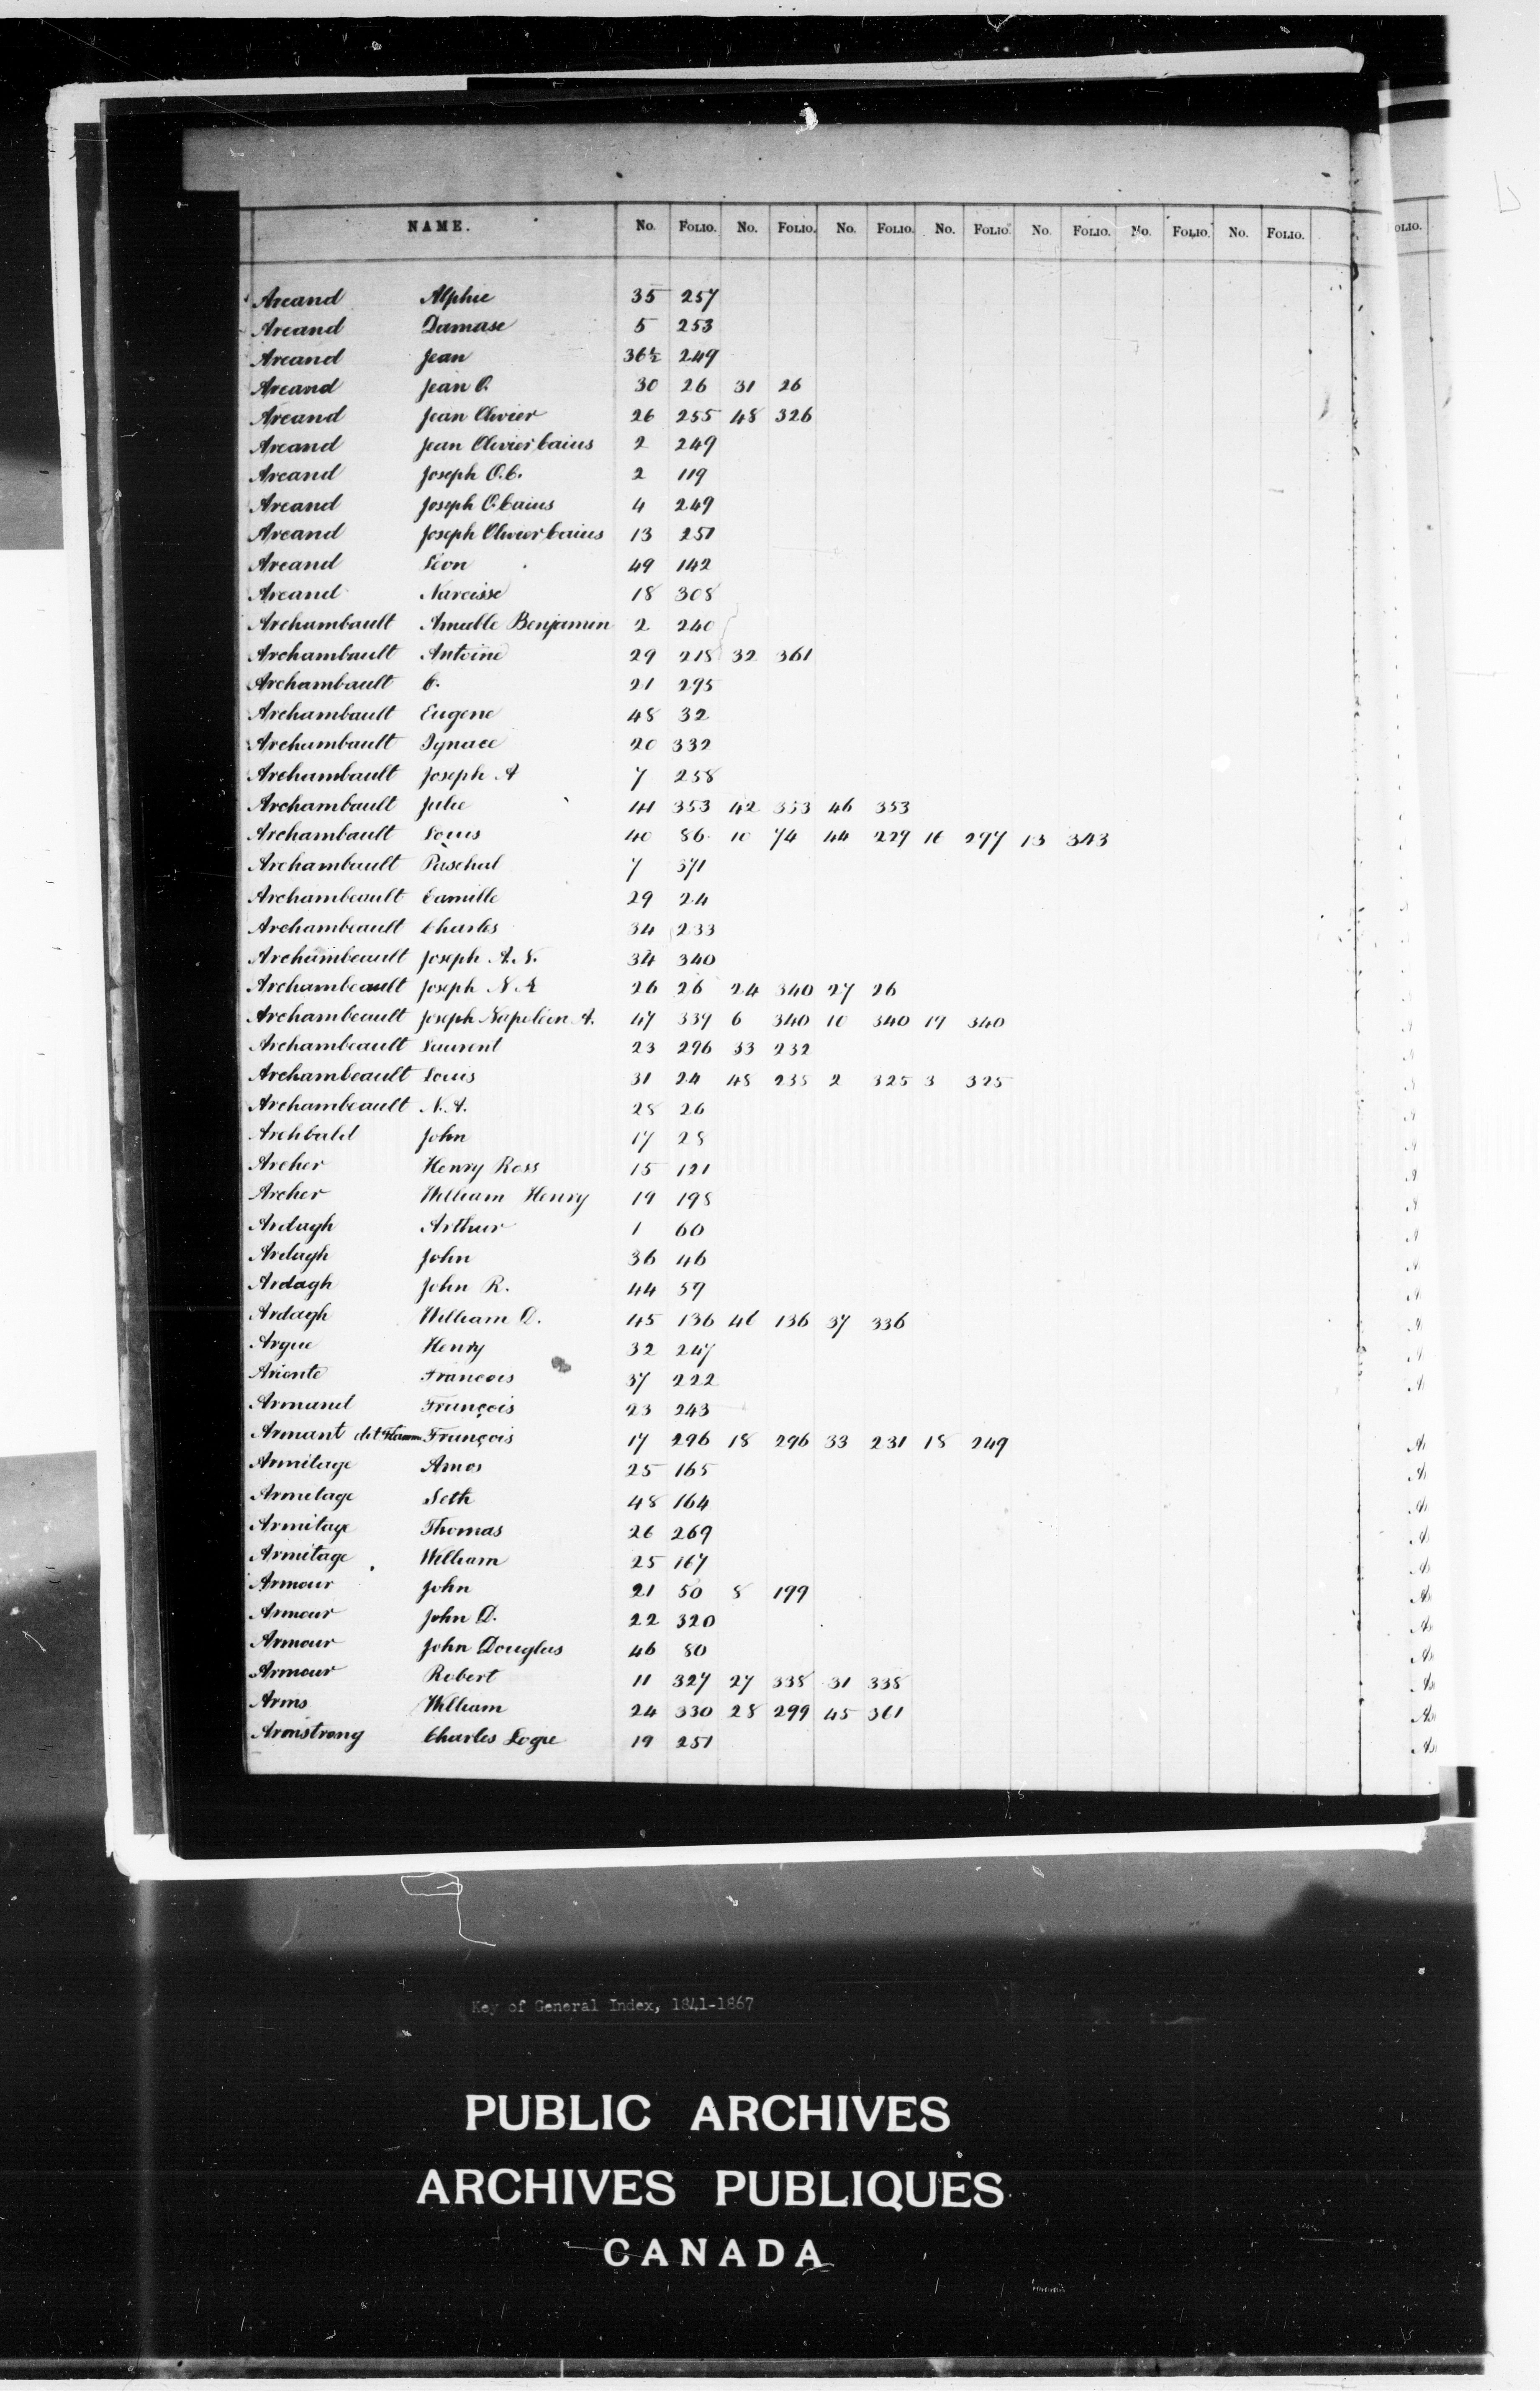 NAME. No. FOLIO. No. FOLIO. No. FOLIO. No. FOLIO. No. FOLIO. No. FOLIO. No. FOLIO.
Arcand Alphie 35 257
Arcand Damase 5 253
Arcand Jean 36½ 249
Arcand Jean O. 30 26 31 26
Arcand Jean Olivier 26 255 48 326
Arcand Jean Olivier Caius 2 249
Arcand Joseph O.C. 2 119
Arcand Joseph O. Caius 4 249
Arcand Joseph Olivier Caius 13 251
Arcand Léon 49 142
Arcand Narcisse 18 308
Archambault Amable Benjamin 2 240
Archambault Antoine 29 218 32 361
Archambault C. 21 295
Archambault Eugene 48 32
Archambault Ignace 20 332
Archambault Joseph A 7 258
Archambault Julie 41 353 42 353 46 353
Archambault Louis 40 86 10 74 44 229 16 297 13 343
Archambault Paschal 7 371
Archambeault Camille 29 24
Archambeault Charles 34 233
Archambeault Joseph A.N. 34 340
Archambeault Joseph N. A 26 26 24 340 27 26
Archambeault Joseph Napoléon A. 47 339 6 340 10 340 19 340
Archambeault Laurent 23 296 33 232
Archambeault Louis 31 24 48 235 2 325 3 325
Archambeault N.A. 28 26
Archbald John 17 28
Archer Henry Ross 15 121
Archer William Henry 19 198
Ardagh Arthur 1 60
Ardagh John 36 46
Ardagh John R. 44 59
Ardagh William D. 45 136 46 136 37 336
Argue Henry 32 247
Ariente Francois 37 222
Armand François 23 243
Armant dit Flamm François 17 296 18 296 33 231 18 249
Armitage Amos 25 165
Armitage Seth 48 164
Armitage Thomas 26 269
Armitage William 25 167
Armour John 21 50 8 199
Armour John D. 22 320
Armour John Douglas 46 80
Armour Robert 11 327 27 338 31 338
Arms William 24 330 28 299 45 361
Armstrong Charles Logie 19 251
Key of General Index, 1841-1867
PUBLIC ARCHIVES
ARCHIVES PUBLIQUES
CANADA